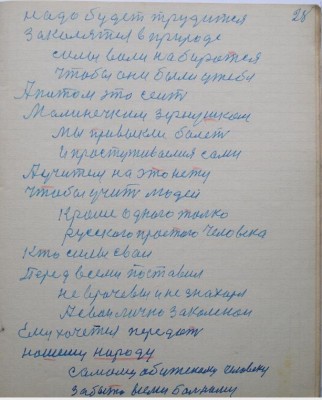 28
надо будет трудится
Закалятся в природе
силы воли набиратся
Чтобы они были у тебя
А потом это сеит
Малинечким зёрнушком
Мы привыкли болет
И простуживаемся сами
А учителя на это нету
Чтобы учит людей
Кроме одного только
русского простого Человека
Кто силы свои
Перед всеми поставил
не врачевы и не знахаря
А свои лично Закалёной
Ему хочется передат
нашему народу
самому обиженому Человеку
забыто всеми больному